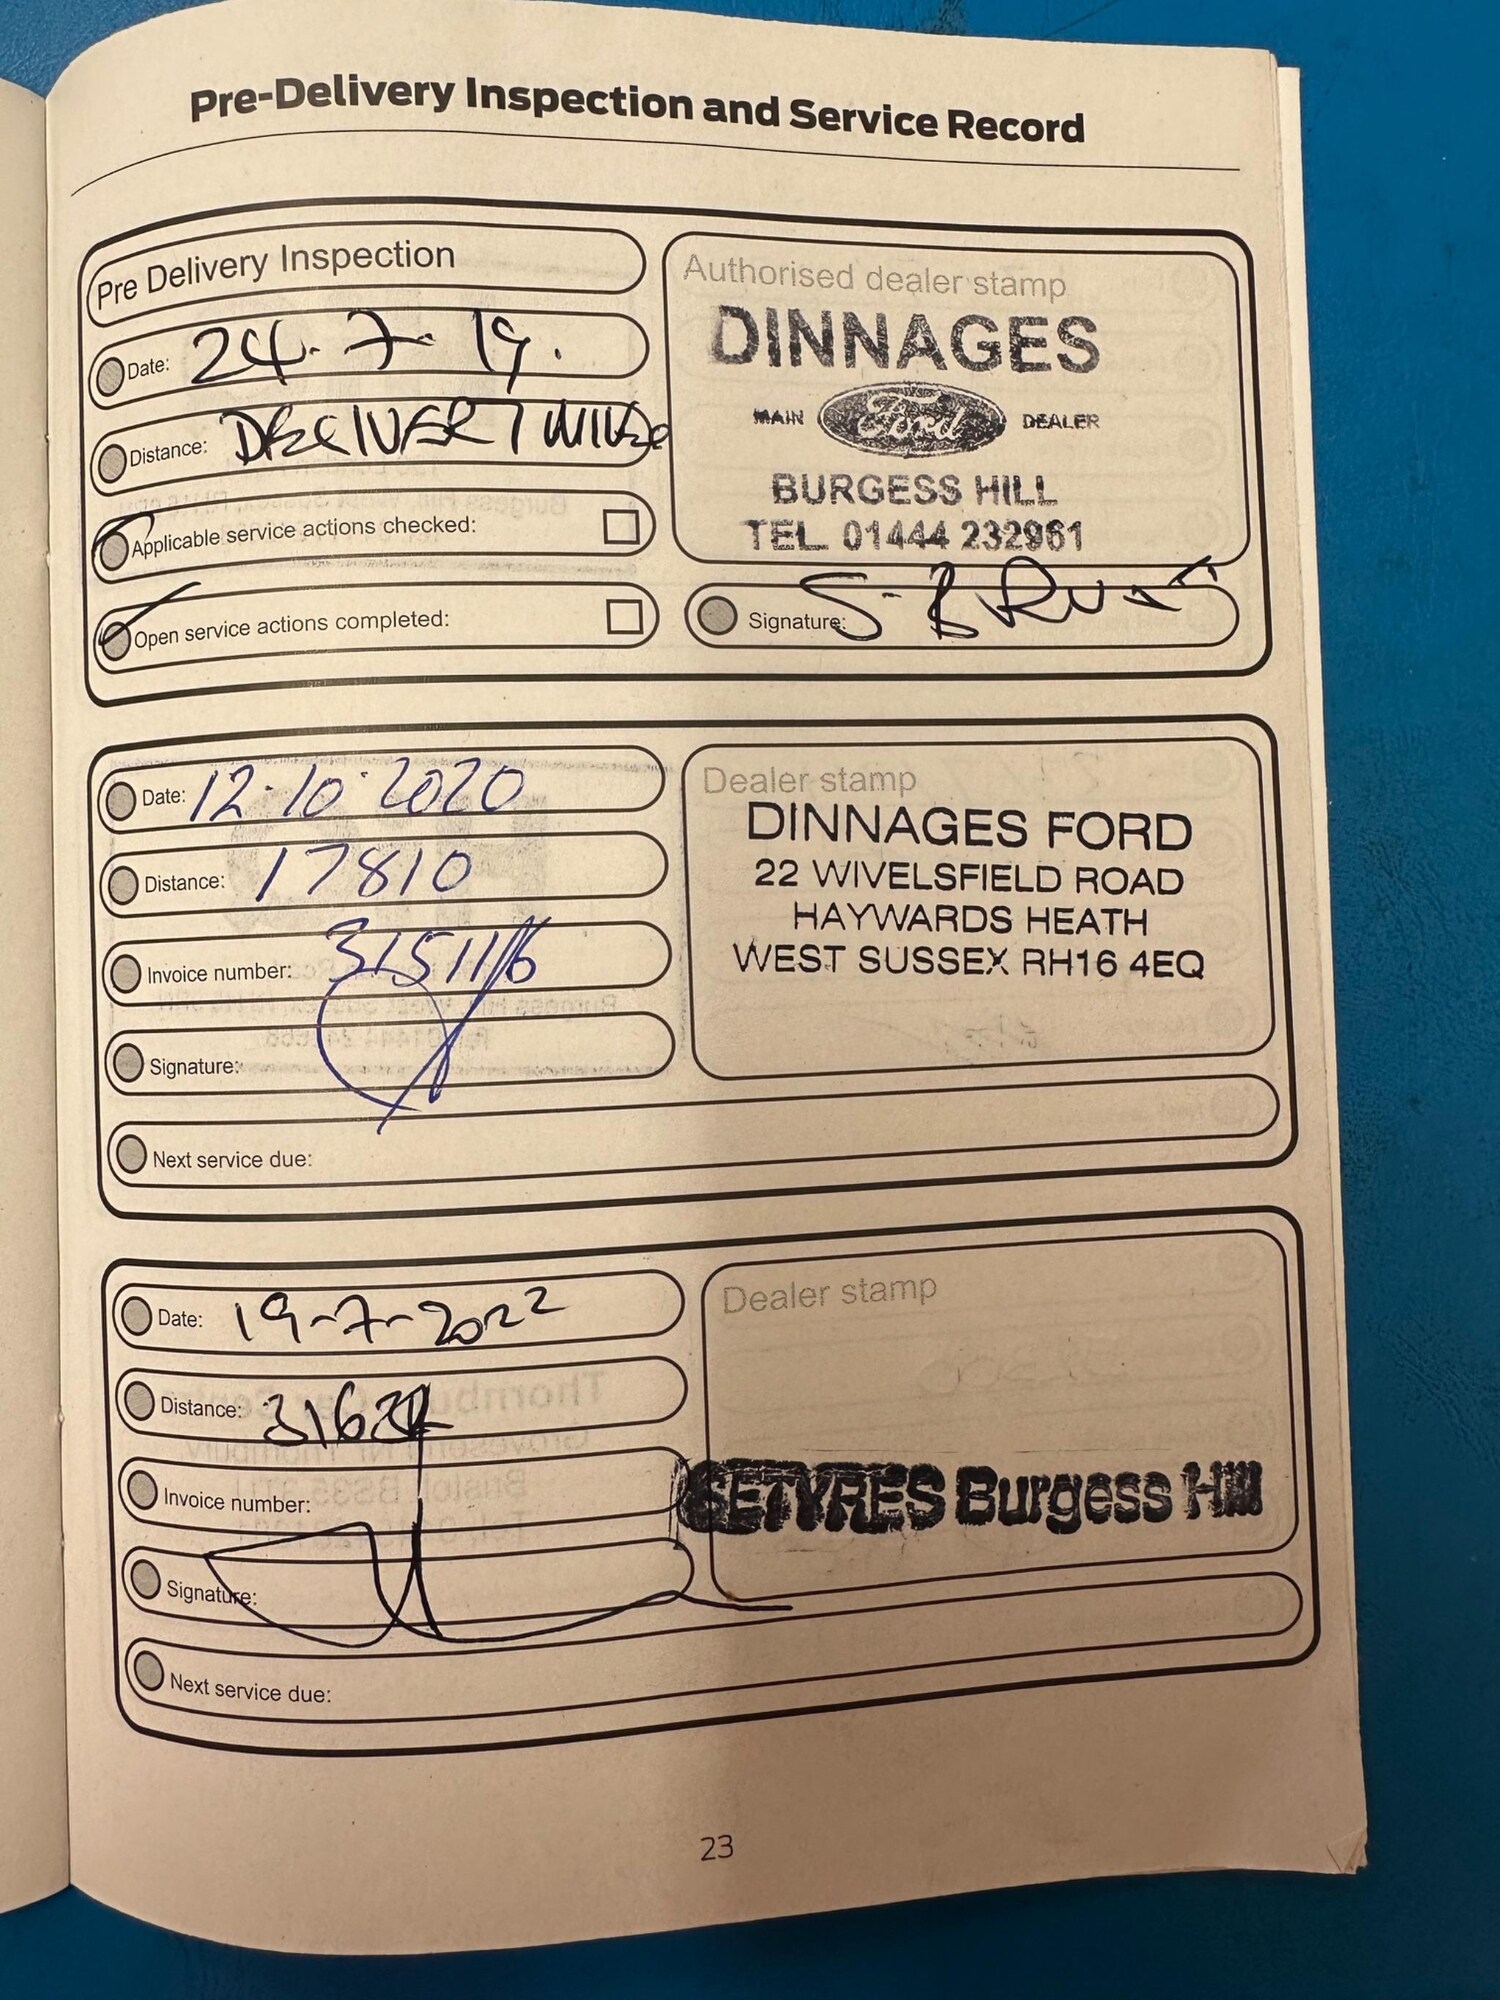 Pre-Delivery Inspection and Service Record
Pre Delivery Inspection
Date: 24.7.19.
Distance: DELIVERY MILES
Applicable service actions checked:
Open service actions completed:
Authorised dealer stamp
DINNAGES
MAIN Ford DEALER
BURGESS HILL
TEL. 01444 232961
Signature:
Date: 12.10.2020
Distance: 17810
Invoice number:
Signature:
Next service due:
Dealer stamp
DINNAGES FORD
22 WIVELSFIELD ROAD
HAYWARDS HEATH
WEST SUSSEX RH16 4EQ
Date: 19-7-2022
Distance:
Invoice number:
Signature:
Next service due:
Dealer stamp
SETYRES Burgess Hill
23